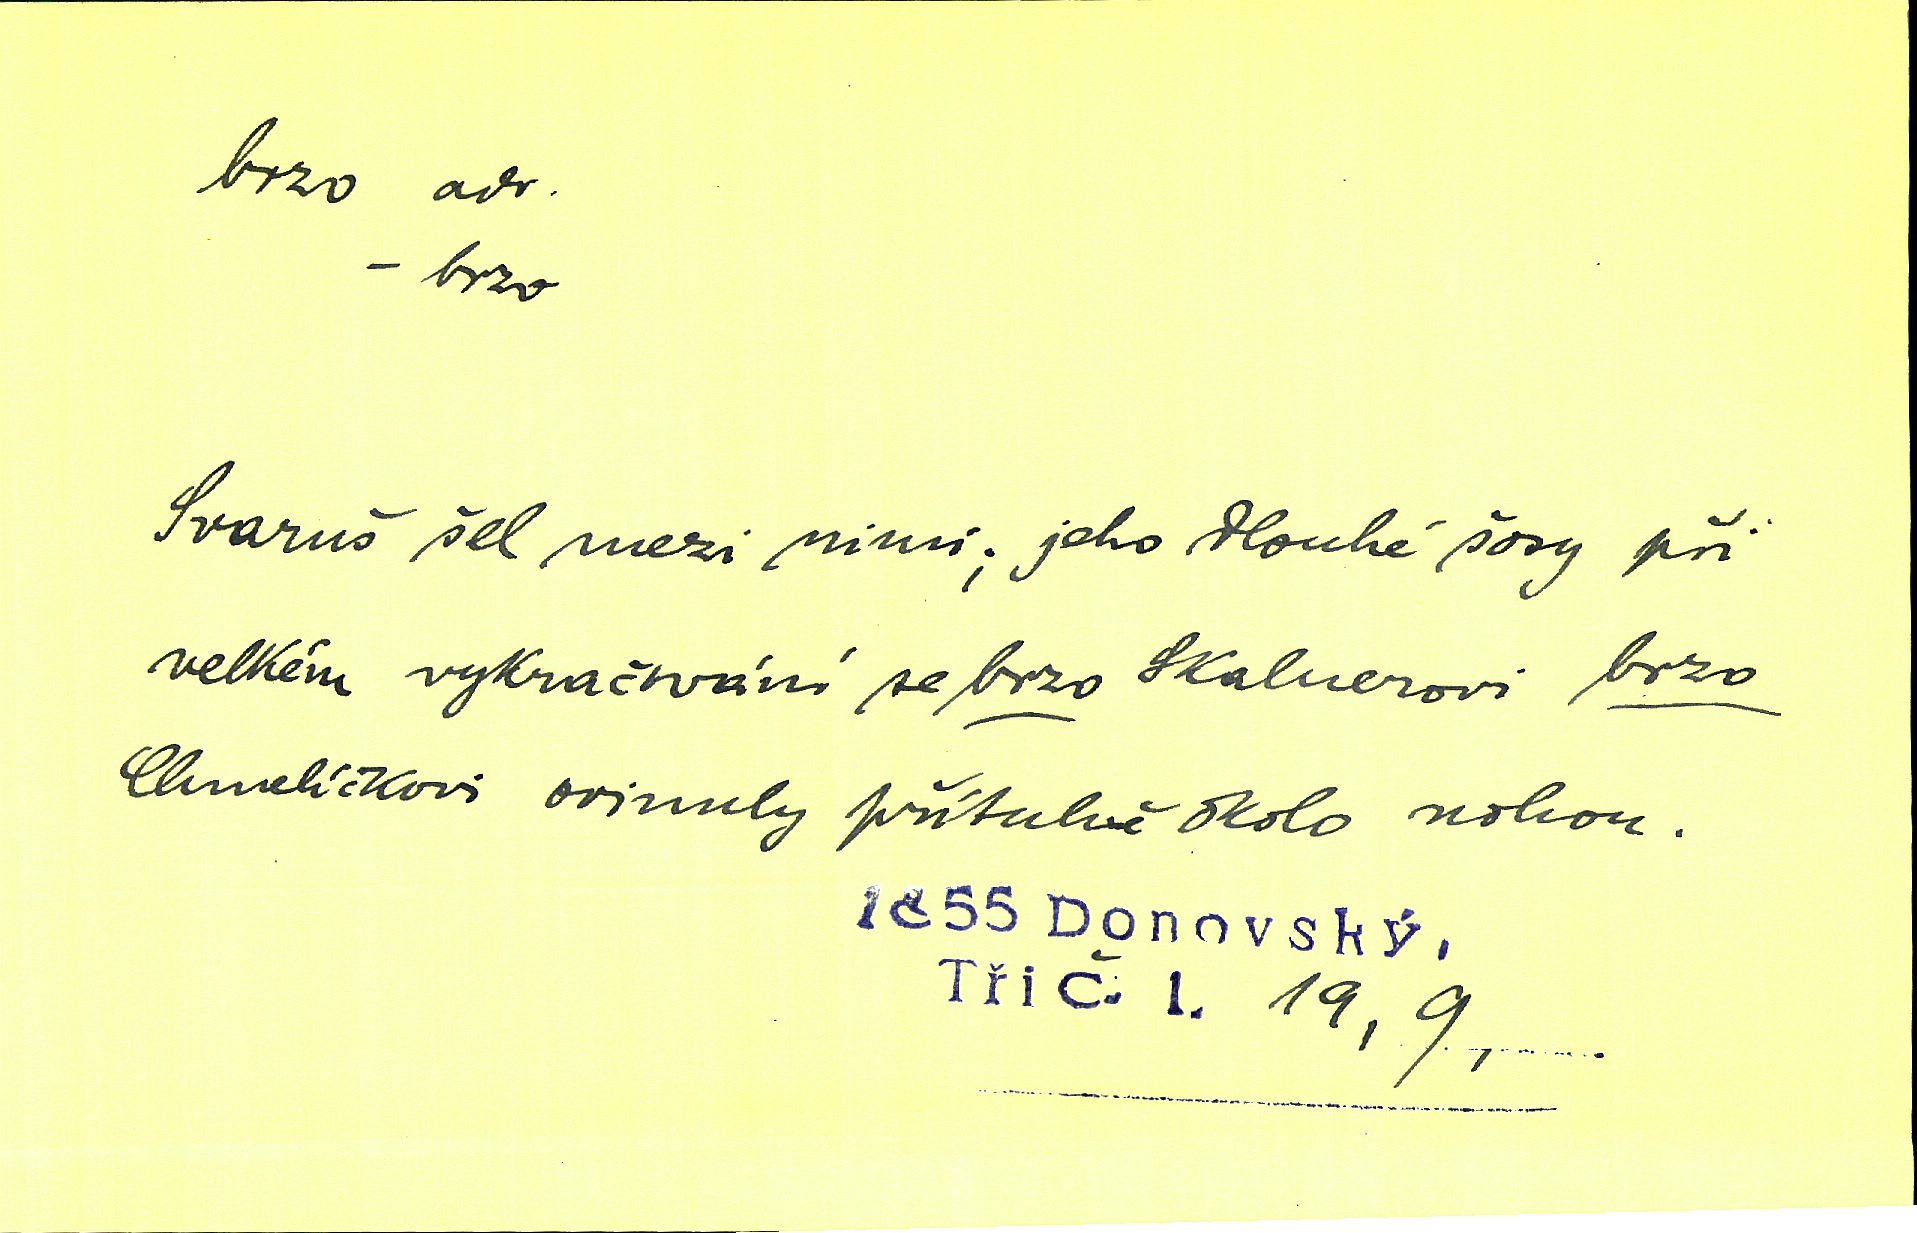 brzo adv.
– brzo
Svaruš šel mezi nimi; jeho dlouhé šosy při
velkém vykračování se brzo Skalnerovi brzo
Chmelíčkovi ovinuly přítulně okolo nohou.
1855 Donovský,
Tři Č. I. 19, 9,